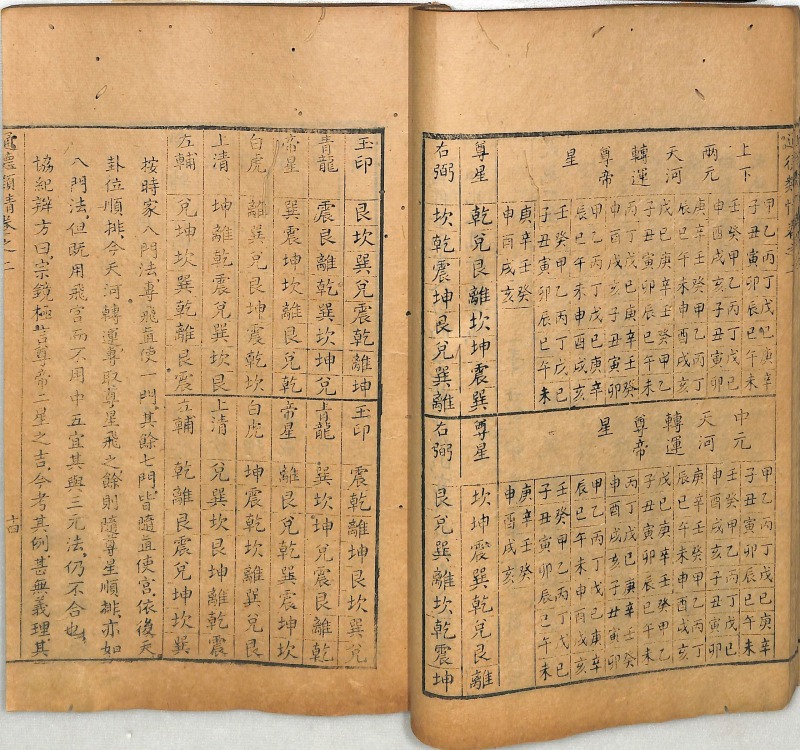 通德類情卷之二
上下
兩元
天河
轉運
尊帝
星
甲乙丙丁戊己庚辛
子丑寅卯辰巳午未
壬癸甲乙丙丁戊己
申酉戌亥子丑寅卯
庚辛壬癸甲乙丙丁
辰巳午未申酉戌亥
戊己庚辛壬癸甲乙
子丑寅卯辰巳午未
丙丁戊己庚辛壬癸
申酉戌亥子丑寅卯
甲乙丙丁戊己庚辛
辰巳午未申酉戌亥
壬癸甲乙丙丁戊己
子丑寅卯辰巳午未
庚辛壬癸
申酉戌亥
尊星 乾兌艮離坎坤震巽
右弼 坎乾震坤艮兌巽離
中元
天河
轉運
尊帝
星
甲乙丙丁戊己庚辛
子丑寅卯辰巳午未
壬癸甲乙丙丁戊己
申酉戌亥子丑寅卯
庚辛壬癸甲乙丙丁
辰巳午未申酉戌亥
戊己庚辛壬癸甲乙
子丑寅卯辰巳午未
丙丁戊己庚辛壬癸
申酉戌亥子丑寅卯
甲乙丙丁戊己庚辛
辰巳午未申酉戌亥
壬癸甲乙丙丁戊己
子丑寅卯辰巳午未
庚辛壬癸
申酉戌亥
尊星 坎坤震巽乾兌艮離
右弼 艮兌巽離坎乾震坤
玉印 艮坎巽兌震乾離坤
青龍 震艮離乾巽坎坤兌
帝星 巽震坤坎離艮兌乾
白虎 離巽兌艮坤震乾坎
上清 坤離乾震兌巽坎艮
左輔 兌坤坎巽乾離艮震
玉印 震乾離坤艮坎巽兌
青龍 巽坎坤兌震艮離乾
帝星 離艮兌乾巽震坤坎
白虎 坤震乾坎離巽兌艮
上清 兌巽坎艮坤離乾震
左輔 乾離艮震兌坤坎巽
按時家八門法,專飛直使一門,其餘七門,皆隨直使宮,依後天
卦位順排,今天河轉運專取尊星飛之,餘則隨尊星順排,亦如
八門法,但既用飛宮而不用中五宜其與三元法,仍不合也,
協紀辨方曰,宗鏡極言尊帝二星之吉,今考其例,甚無義理,其
通德類情卷之二
十四